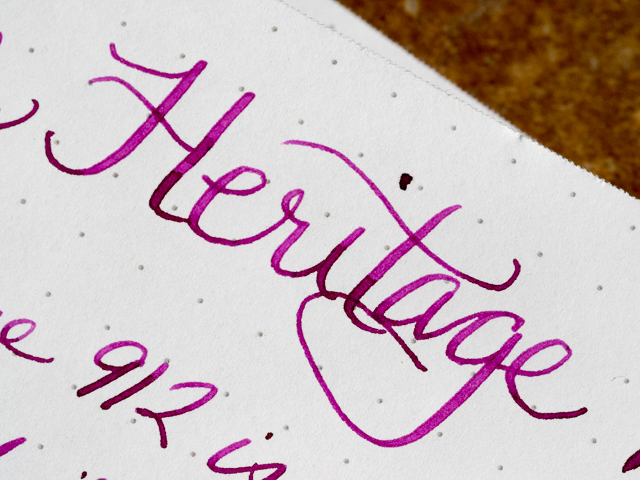 Heritage
912 is